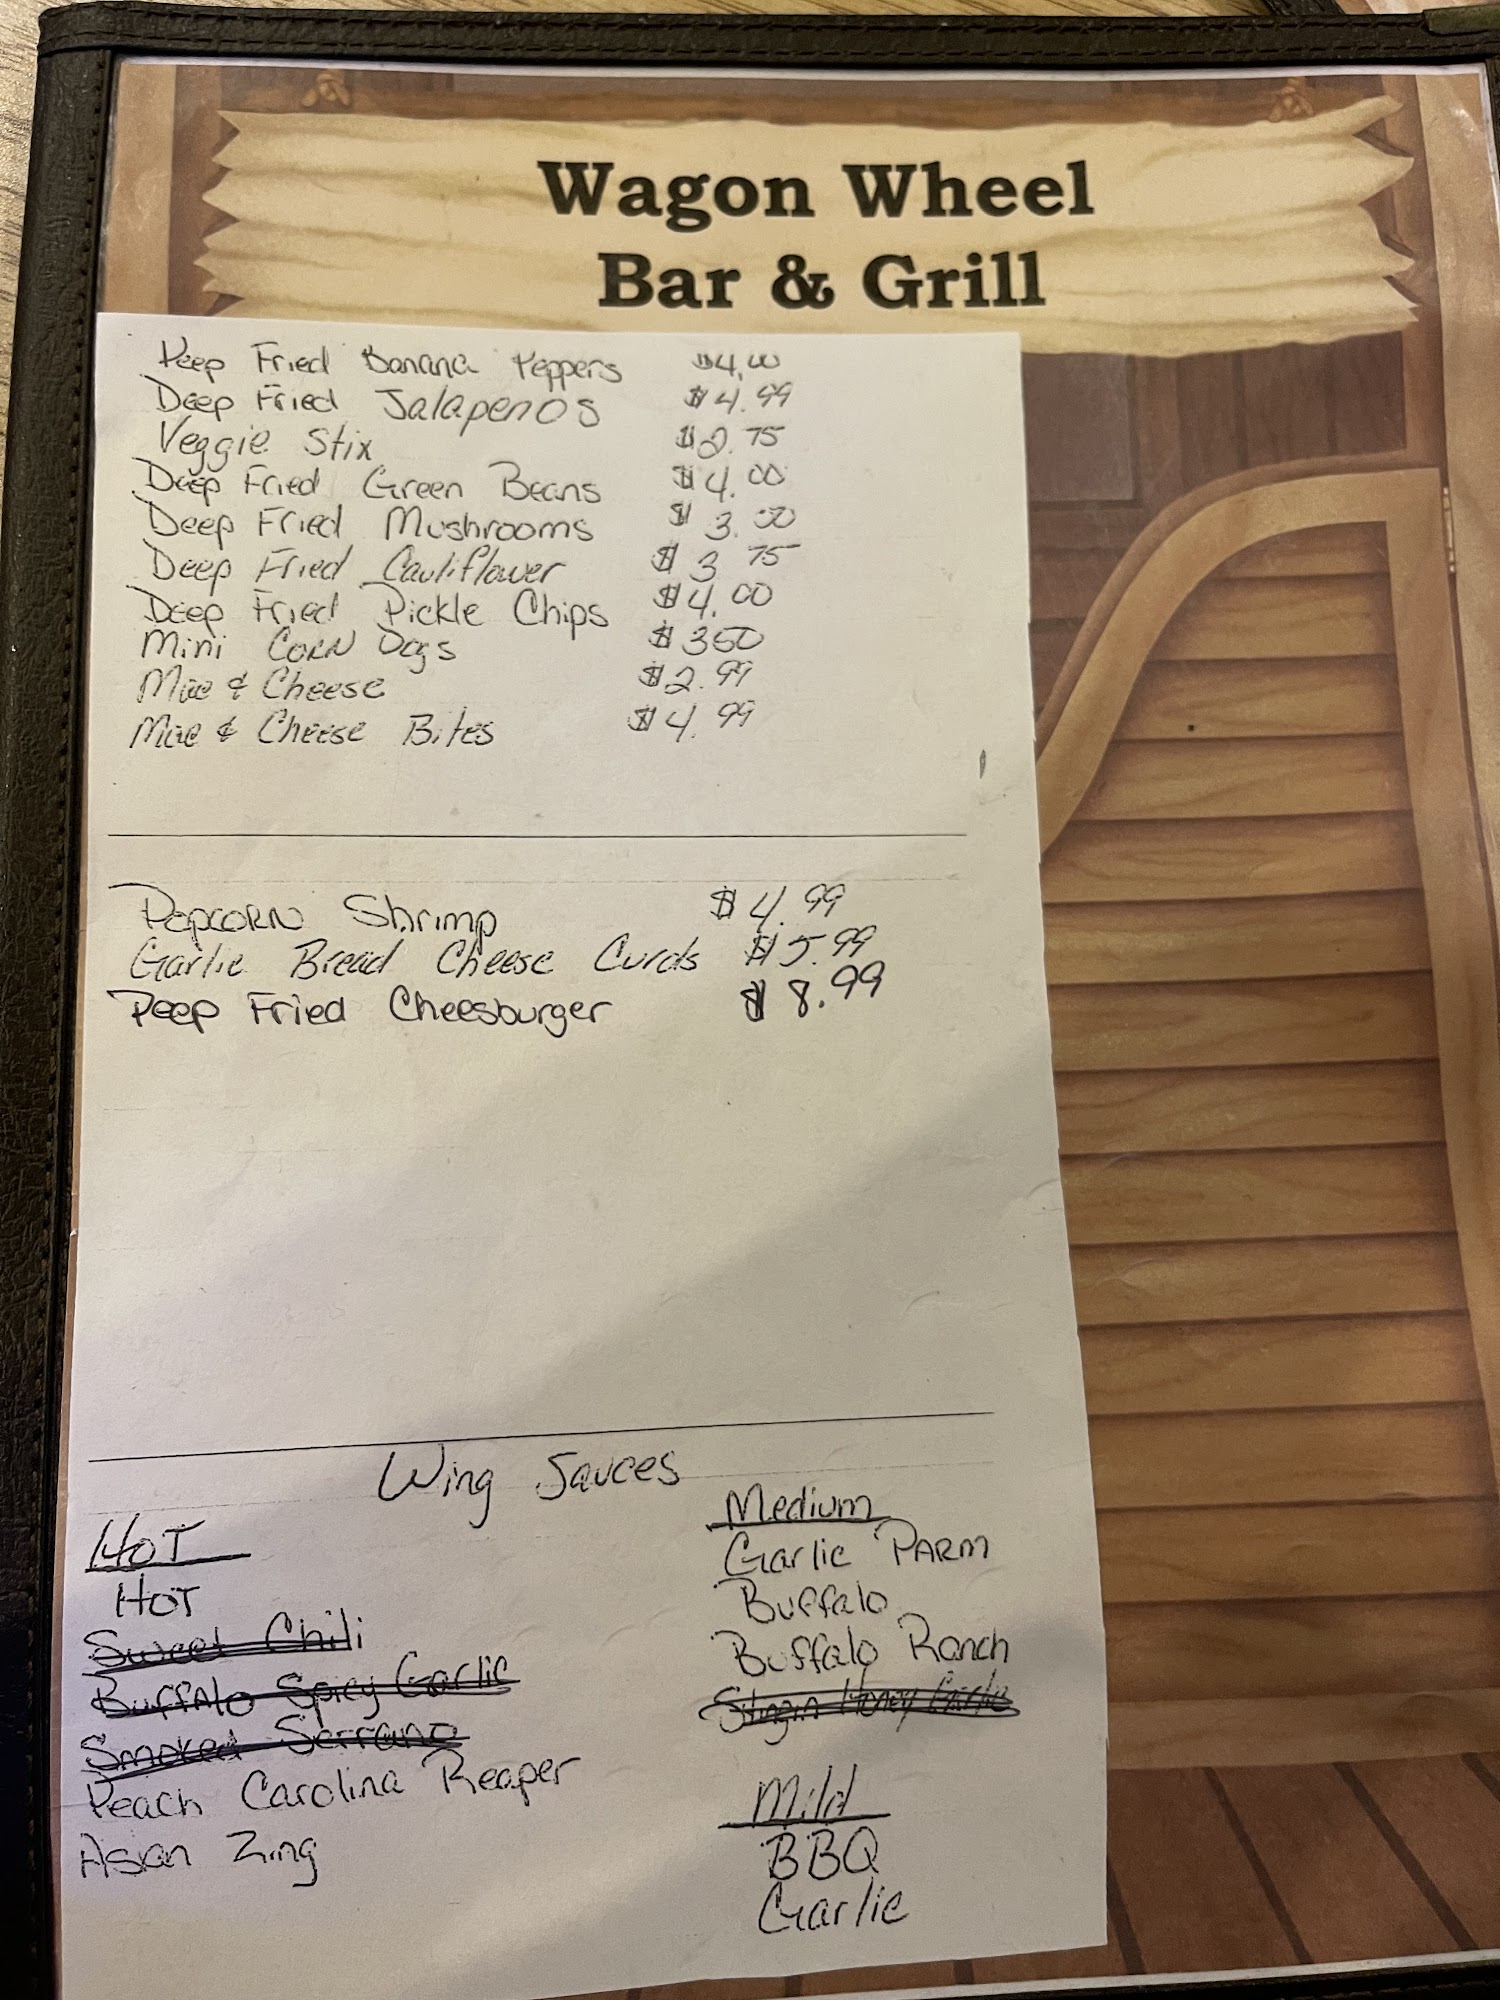 Wagon Wheel
Bar & Grill
Deep Fried Banana Peppers $4.00
Deep Fried Jalapenos $4.99
Veggie Stix $2.75
Deep Fried Green Beans $4.00
Deep Fried Mushrooms $3.00
Deep Fried Cauliflower $3 75
Deep Fried Pickle Chips $4.00
Mini CORN Dogs $350
Mac & Cheese $2.99
Mac & Cheese Bites $4.99
POPCORN Shrimp $4.99
Garlic Bread Cheese Curds $5.99
Deep Fried Cheesburger $8.99
Wing Sauces
HOT
HOT
Sweet Chili
Buffalo Spicy Garlic
Smoked Serrano
Peach Carolina Reaper
Asian Zing
Medium
Garlic PARM
Buffalo
Buffalo Ranch
Stingin Honey Garlic
Mild
BBQ
Garlic